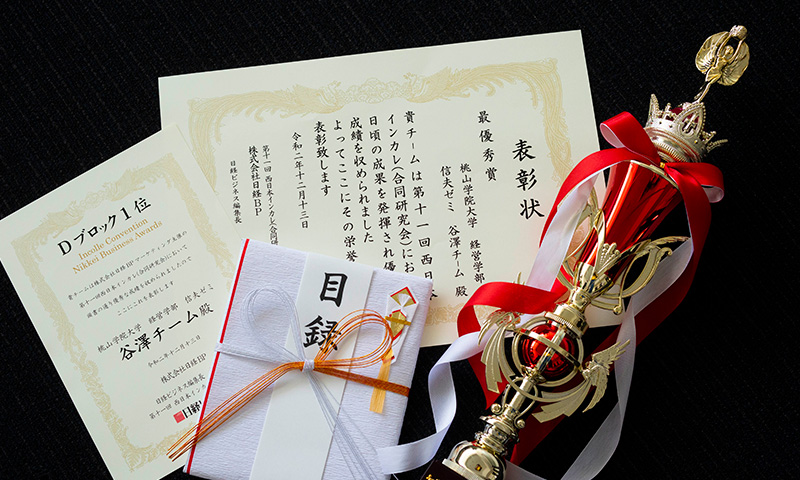 表彰状
最優秀賞
桃山学院大学 経営学部
信夫ゼミ 谷澤チーム 殿
貴チームは第十一回西日
インカレ(合同研究会)にお
日頃の成果を発揮され優
成績を収められました
よってここにその栄
表彰致します
令和二年十二月十三日
第十一回 西日本インカレ(合同研
株式会社日経BP
日経ビジネス編集長
Dブロック1位
Incolle Convention
Nikkei Business Awards
貴チームは株式会社日経BPマーケティング主催の
第十一回西日本インカレ(合同研究会)において
頭書の通り優秀な成績を収められましたので
ここにこれを表彰します
桃山学院大学 経営学部 信夫ゼ
谷澤チーム殿
令和二年十二月十三日
株式会社日経BP
日経ビジネス編集長
第十一回 西日本インカ
日経
目録